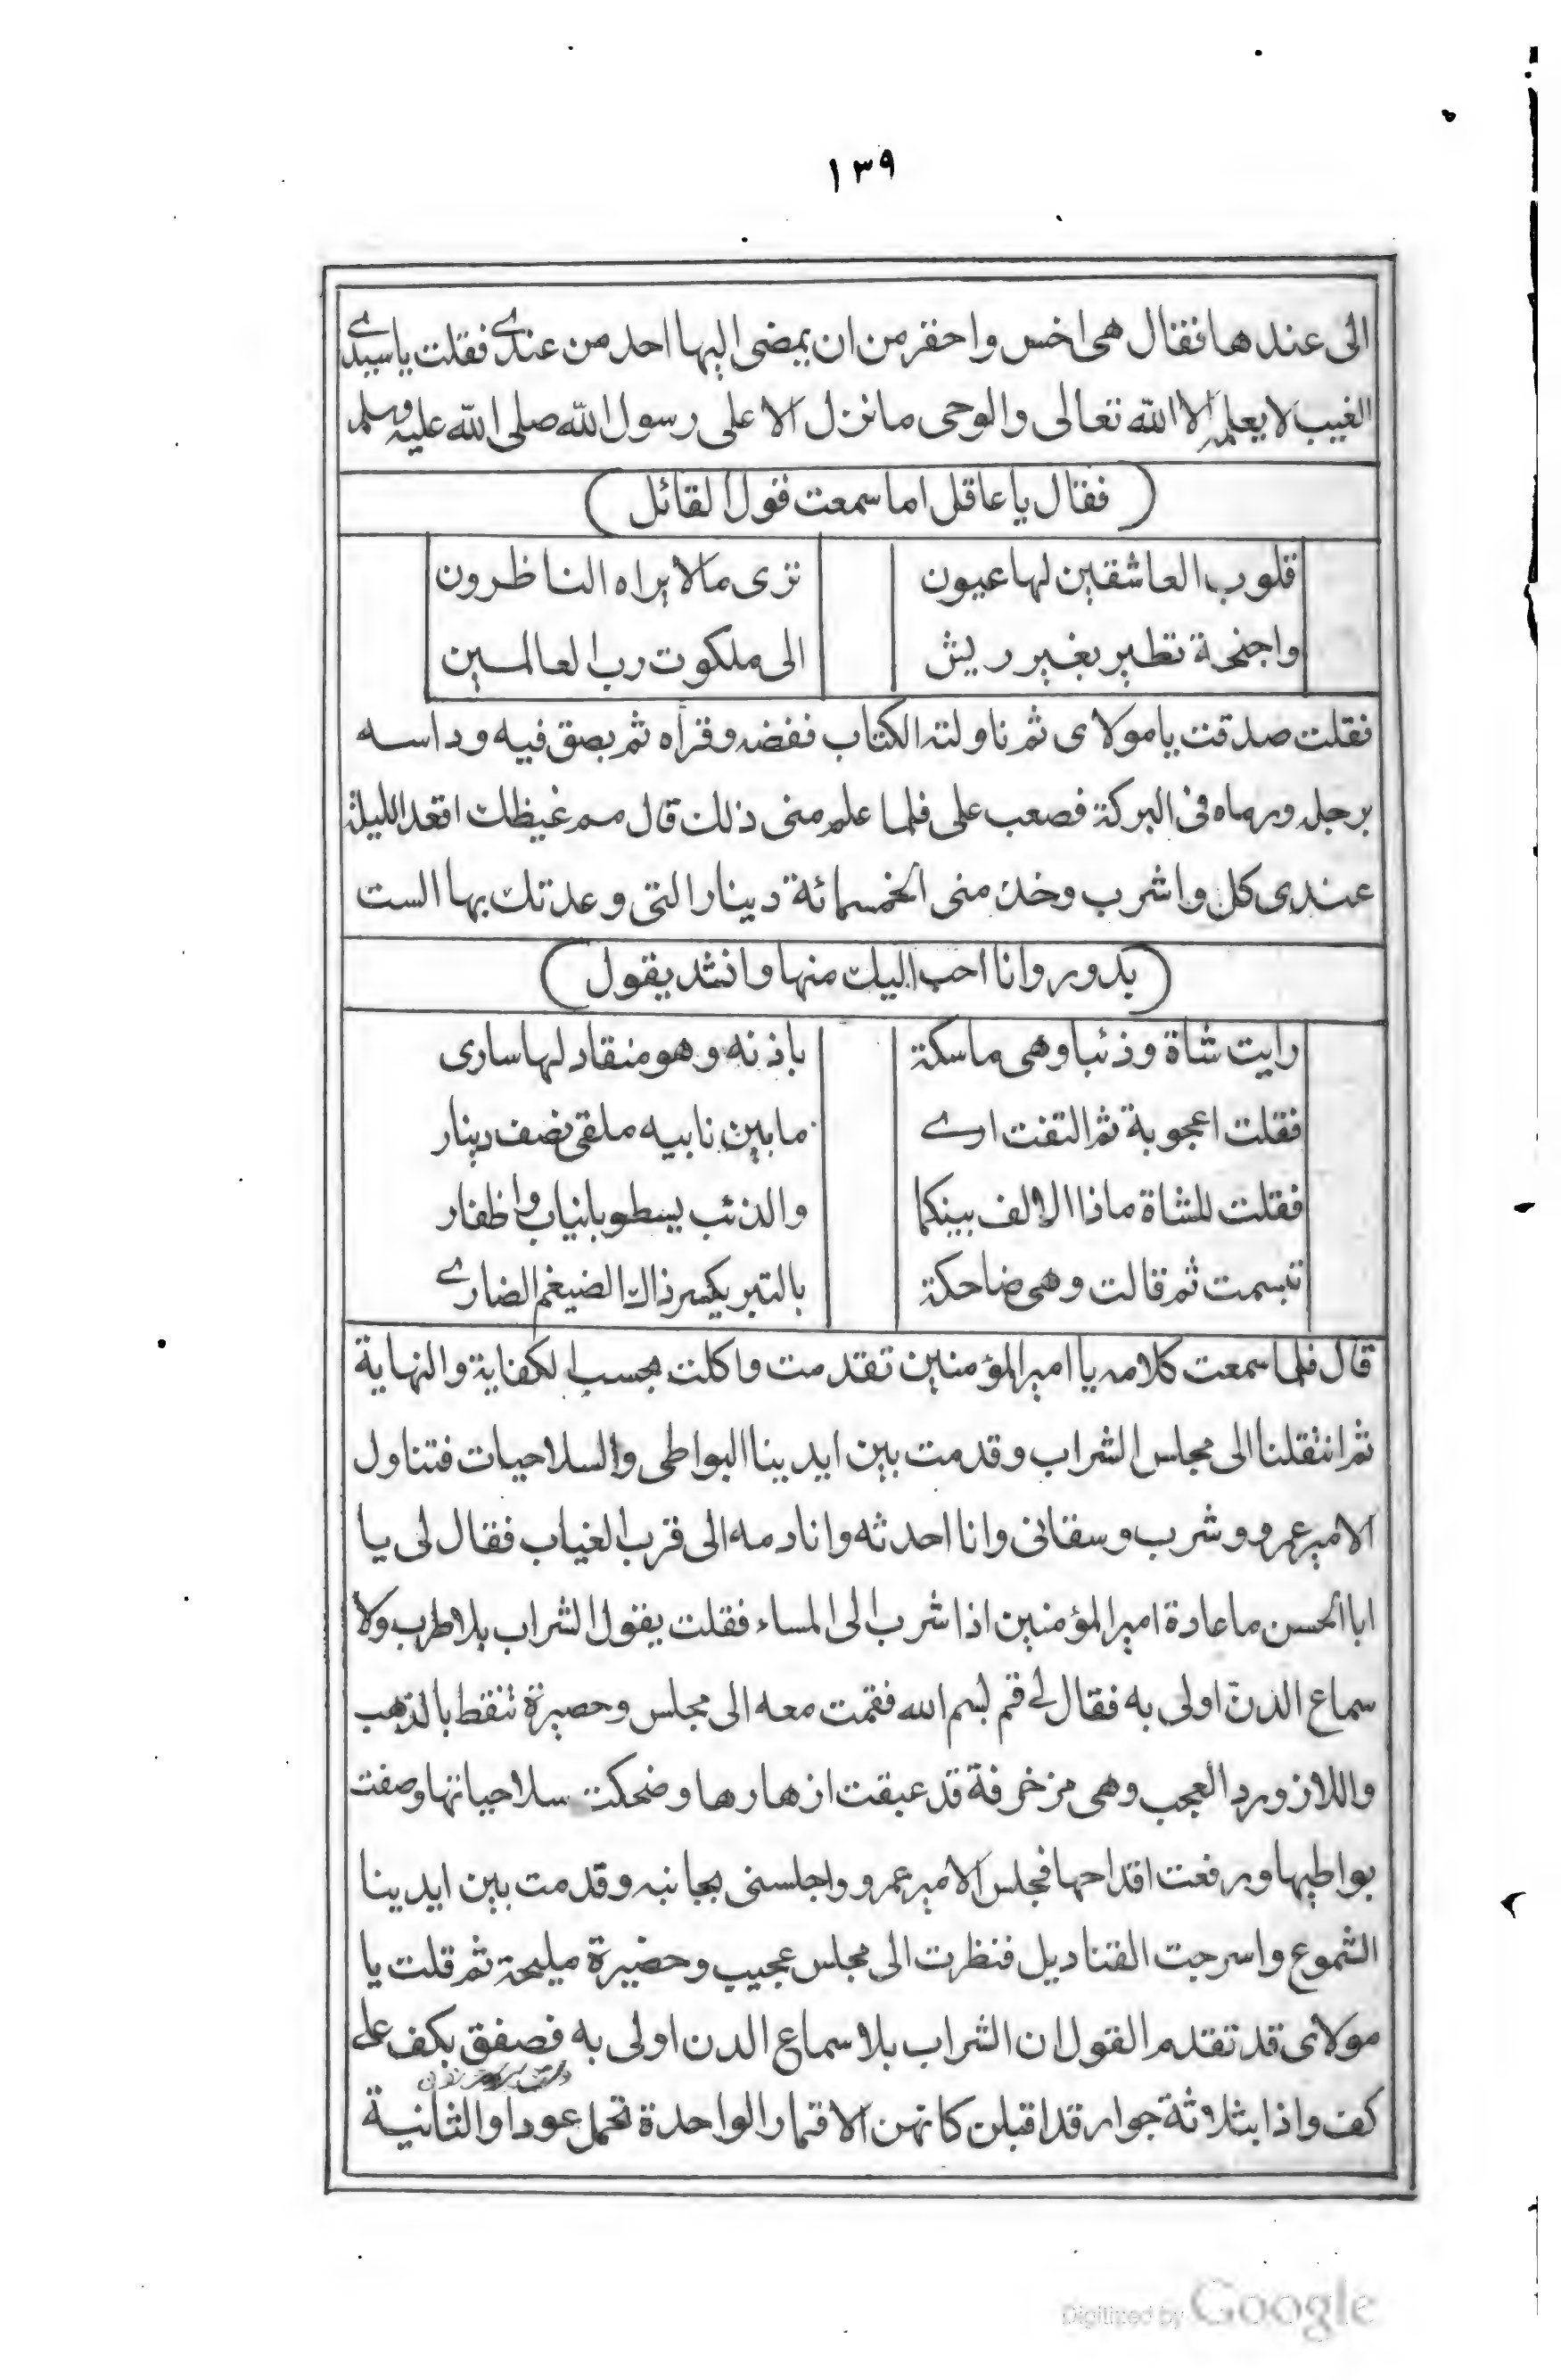 ١٣٩
الى عندها فقال هى اخس واحقر من ان يمضى اليها احد من عندى فقلت ياسيدى
الغيب لا يعلمه الا الله تعالى والوحى مانزل الا على رسول الله صلى الله عليه وسلم
(فقال ياعاقل اما سمعت قول القائل)
قلوب العاشقين لها عيون ترى مالا يراه الناظرون
واجنحة تطير بغير ريش الى ملكوت رب العالمين
فقلت صدقت يا مولاى ثم ناولته الكتاب ففضه وقرأه ثم بصق فيه وداسه
برجله ورماه فى البركة فصعب على فلما علم منى ذلك قال مم غيظك اقعد الليلة
عندى كل واشرب وخذ منى الخمسمائة دينار التى وعدتك بها الست
(بدور وانا احب اليك منها وانشد يقول)
رايت شاة وذئبا وهى ماسكة باذنه وهو منقاد لها سارى
فقلت اعجوبة ثم التفت ارى ما بين نابيه ملقى نصف دينار
فقلت للشاة ماذا الالف بينكما والذئب يسطو بانياب واظفار
تبسمت ثم قالت وهى ضاحكة بالتبر يكسر ذاك الضيغم الضارى
قال فلما سمعت كلامه يا امير المؤمنين تقدمت واكلت بحسب الكفاية والنهاية
ثم انتقلنا الى مجلس الشراب وقدمت بين ايدينا البواطى والسلاحيات فتناول
الامير عمرو وشرب وسقانى وانا احدثه وانادمه الى قرب الغياب فقال لى يا
ابا الحسن ما عادة امير المؤمنين اذا شرب الى المساء فقلت يقول الشراب بلا طرب ولا
سماع الدنّ اولى به فقال لى قم بسم الله فقمت معه الى مجلس وحصيرة تنقط بالذهب
واللازورد العجب وهى مزخرفة قد عبقت ازهارها وضحكت سلاحياتها وصفت
بواطيها ورفعت اقداحها فجلس الامير عمرو واجلسنى بجانبه وقدمت بين ايدينا
الشموع واسرجت القناديل فنظرت الى مجلس عجيب وحضيرة مليحة ثم قلت يا
مولاى قد تقدم القول ان الشراب بلا سماع الدن اولى به فصفق بكف على
كف واذا بثلاثة جوار قد اقبلن كانهن الاقمار الواحدة تحمل عودا والثانية
Digitized by Google